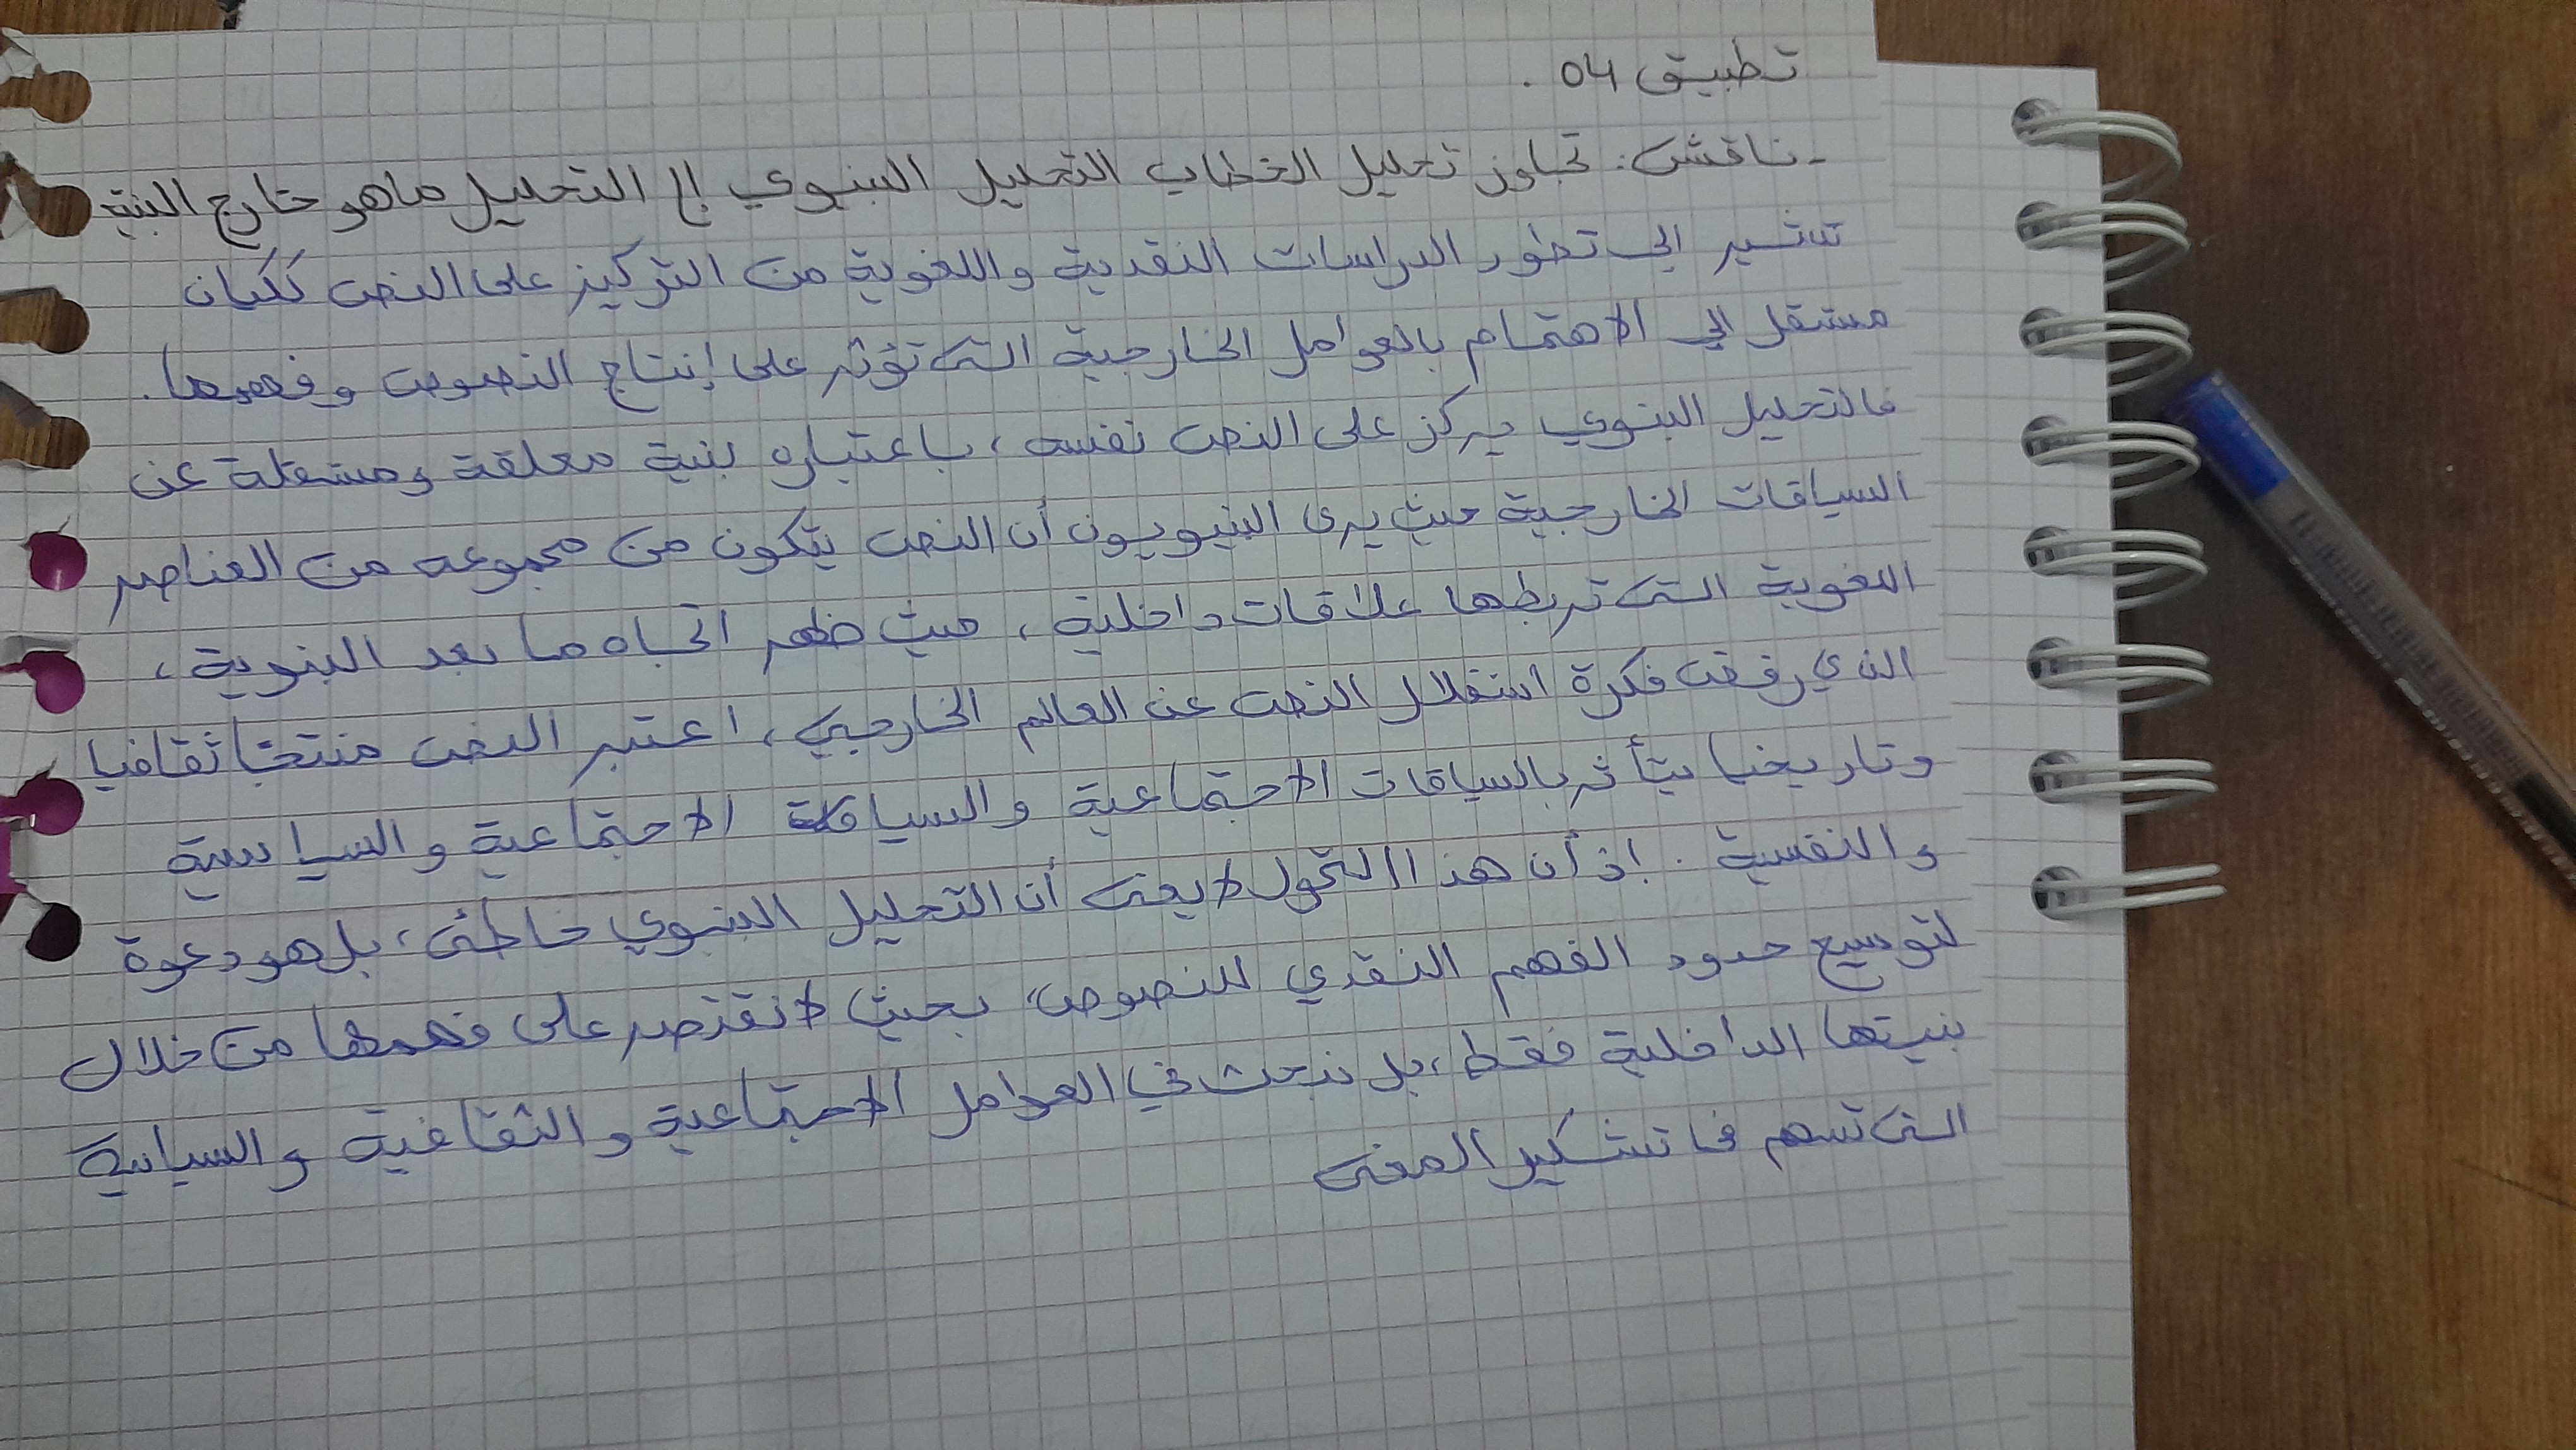 تطبيق 04 .
- ناقش: تجاوز تحليل الخطاب التحليل البنيوي إلى التحليل ماهو خارج البنية
تشير إلى تطور الدراسات النقدية واللغوية من التركيز على النص ككيان
مستقل إلى الاهتمام بالعوامل الخارجية التي تؤثر على إنتاج النصوص وفهمها.
فالتحليل البنوي يركز على النص نفسه، باعتباره بنية مغلقة ومستقلة عن
السياقات الخارجية حيث يرى البنيويون أن النص يتكون من مجموعه من العناصر
اللغوية التي تربطها علاقات داخلية، حيث ظهر اتجاه ما بعد البنوية،
الذي رفض فكرة استقلال النص عن العالم الخارجي، اعتبر النص منتجا ثقافيا
وتاريخيا يتأثر بالسياقات الاجتماعية والسياقة الاجتماعية والسياسية
والنفسية . إذ أن هذا التحول لا يعني أن التحليل البنوي خاطئ، بل هو دعوة
لتوسيع حدود الفهم النقدي للنصوص، بحيث لا نقتصر على فهمها من خلال
بنيتها الداخلية فقط، بل نبحث في العوامل الاجتماعية والثقافية والسياسية
التي تسهم في تشكيل المعنى